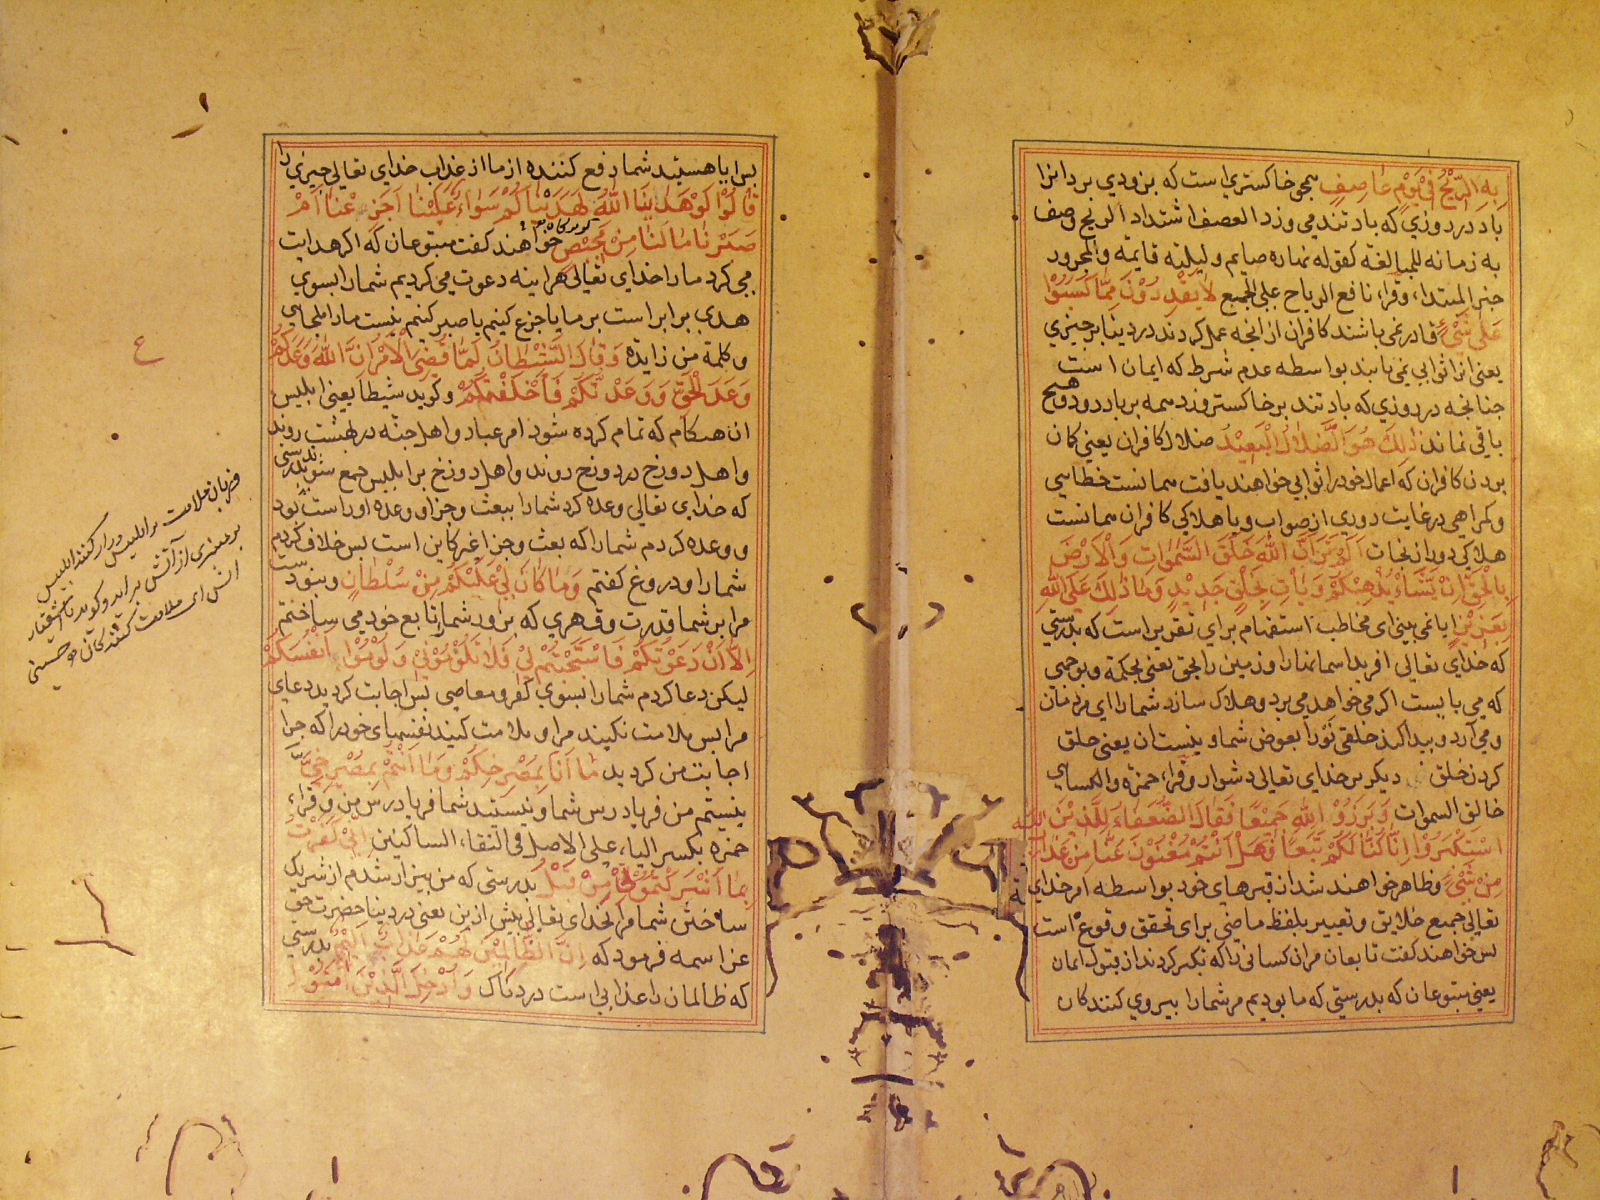 بِهِ الرِّيحُ فِي يَوْمٍ عَاصِفٍ همچو خاكستري است كه بزودي برد انرا
باد در روزي كه باد تند مي وزد العصف اشتداد الريح وصف
به زمانه للمبالغة كقوله نهاره صايم وليلته قايمة والمجرور
خبر المبتداء وقراء نافع الرياح علي الجمع لَا يَقْدِرُوْنَ مِمَّا كَسَبُوْا
عَلَى شَيْءٍ قادر نمي باشند كافران از انچه عمل كردند در دينا بر چيزي
يعني انرا ثوابي نمي يابند بواسطه عدم شرط كه ايمان است
چنانچه در روزي كه باد تند بر خاكستر وزد همه برباد رود وهيچ
باقي نماند ذٰلِكَ هُوَ الضَّلَالُ الْبَعِيْدُ ضلال كافران يعني كمان
بودن كافران كه اعمال خود را ثوابي خواهند يافت همانست خطاسي
وكمراهي در غايت دوري از صواب ويا هلاكي كافران همانست
هلاكي دور از نجات اَلَمْ تَرَ اَنَّ اللّٰهَ خَلَقَ السَّمٰوَاتِ وَالْاَرْضَ
بِالْحَقِّ اِنْ يَّشَاْ يُذْهِبْكُمْ وَيَأْتِ بِخَلْقٍ جَدِيْدٍ وَمَا ذٰلِكَ عَلَى اللّٰهِ
بِعَزِيْزٍ ايا نمي بيني اي مخاطب استفهام براي تقرير است كه بدرستي
كه خداي تعالي افريد اسمانها را وزمين را بحق يعني بحكمة وبوجهي
كه مي بايست اكر مي خواهد مي برد وهلاك سازد شمارا اي مردمان
ومي آرد وپيدا كند خلقي نو را بعوض شما ونيست ان يعني خلق
كردن خلق ديكر بر خداي تعالي دشوار وقراء حمزة والكساي
خالق السموات وَبَرَزُوْا لِلّٰهِ جَمِيْعًا فَقَالَ الضُّعَفَاءُ لِلَّذِيْنَ
اسْتَكْبَرُوْا اِنَّا كُنَّا لَكُمْ تَبَعًا فَهَلْ اَنْتُمْ مُغْنُوْنَ عَنَّا مِنْ عَذَابِ
مِنْ شَيْءٍ وظاهر خواهند شد از قبرهاي خود بواسطه امر خداي
تعالي جميع خلايق وتعبير بلفظ ماضي براي تحقق وقوع است
پس خواهند كفت تابعان مران كساني را كه تكبر كردند از قبول ايمان
يعني متبوعان كه بدرستي كه ما بوديم مر شمارا پيروي كنندكان
پس ايا هستيد شما دفع كننده از ما از عذاب خداي تعالي چيزي را
قَالُوْا لَوْ هَدٰينَا اللّٰهُ لَهَدَيْنَاكُمْ سَوَاءٌ عَلَيْنَا اَجَزِعْنَا اَمْ
صَبَرْنَا مَا لَنَا مِنْ مَّحِيْصٍ خواهند كفت متبوعان كه اكر هدايت
مي كرد مارا خداي تعالي هراينه دعوت مي كرديم شمارا بسوي
هدي برابر است بر ما يا جزع كنيم يا صبر كنيم نيست مارا ملجاي
وكلمة من زايده وَقَالَ الشَّيْطَانُ لَمَّا قُضِيَ الْاَمْرُ اِنَّ اللّٰهَ وَعَدَكُمْ
وَعْدَ الْحَقِّ وَوَعَدْتُّكُمْ فَاَخْلَفْتُكُمْ وكويد شيطان يعني ابليس
ان هنكام كه تمام كرده شود امر عباد واهل جنة در بهشت روند
واهل دوزخ در دوزخ روند واهل دوزخ بر ابليس جمع شوند بدرستي
كه خداي تعالي وعده كرد شمارا ببعث وجزا ووعده او راست بود
ووعده كردم شمارا كه بعث وجزا غير كاين است پس خلاف كردم
شمارا ودروغ كفتم وَمَا كَانَ لِيْ عَلَيْكُمْ مِنْ سُلْطَانٍ ونبودست
مرا بر شما قدرت وقهري كه بزور شمارا تابع خود مي ساختم
اِلَّا اَنْ دَعَوْتُكُمْ فَاسْتَجَبْتُمْ لِيْ فَلَا تَلُوْمُوْنِيْ وَلُوْمُوْا اَنْفُسَكُمْ
ليكن دعا كردم شمارا بسوي كفر ومعاصي پس اجابت كرديد دعاي
مرا پس ملامت نكنيد مرا وملامت كنيد نفسهاي خود را كه چرا
اجابت من كرديد مَا اَنَا بِمُصْرِخِكُمْ وَمَا اَنْتُمْ بِمُصْرِخِيَّ
نيستم من فرياد رس شما ونيستيد شما فرياد رس من وقراء
حمزه بكسر الياء علي الاصل في التقاء الساكنين اِنِّيْ كَفَرْتُ
بِمَا اَشْرَكْتُمُوْنِ مِنْ قَبْلُ بدرستي كه من بيزار شدم از شريك
ساختن شما مرا بخداي تعالي پيش ازين يعني در دينا حضرت حق
عز اسمه فرمود كه اِنَّ الظَّالِمِيْنَ لَهُمْ عَذَابٌ اَلِيْمٌ بدرستي
كه ظالمان را عذابي است دردناك وَاُدْخِلَ الَّذِيْنَ اٰمَنُوْا
ع